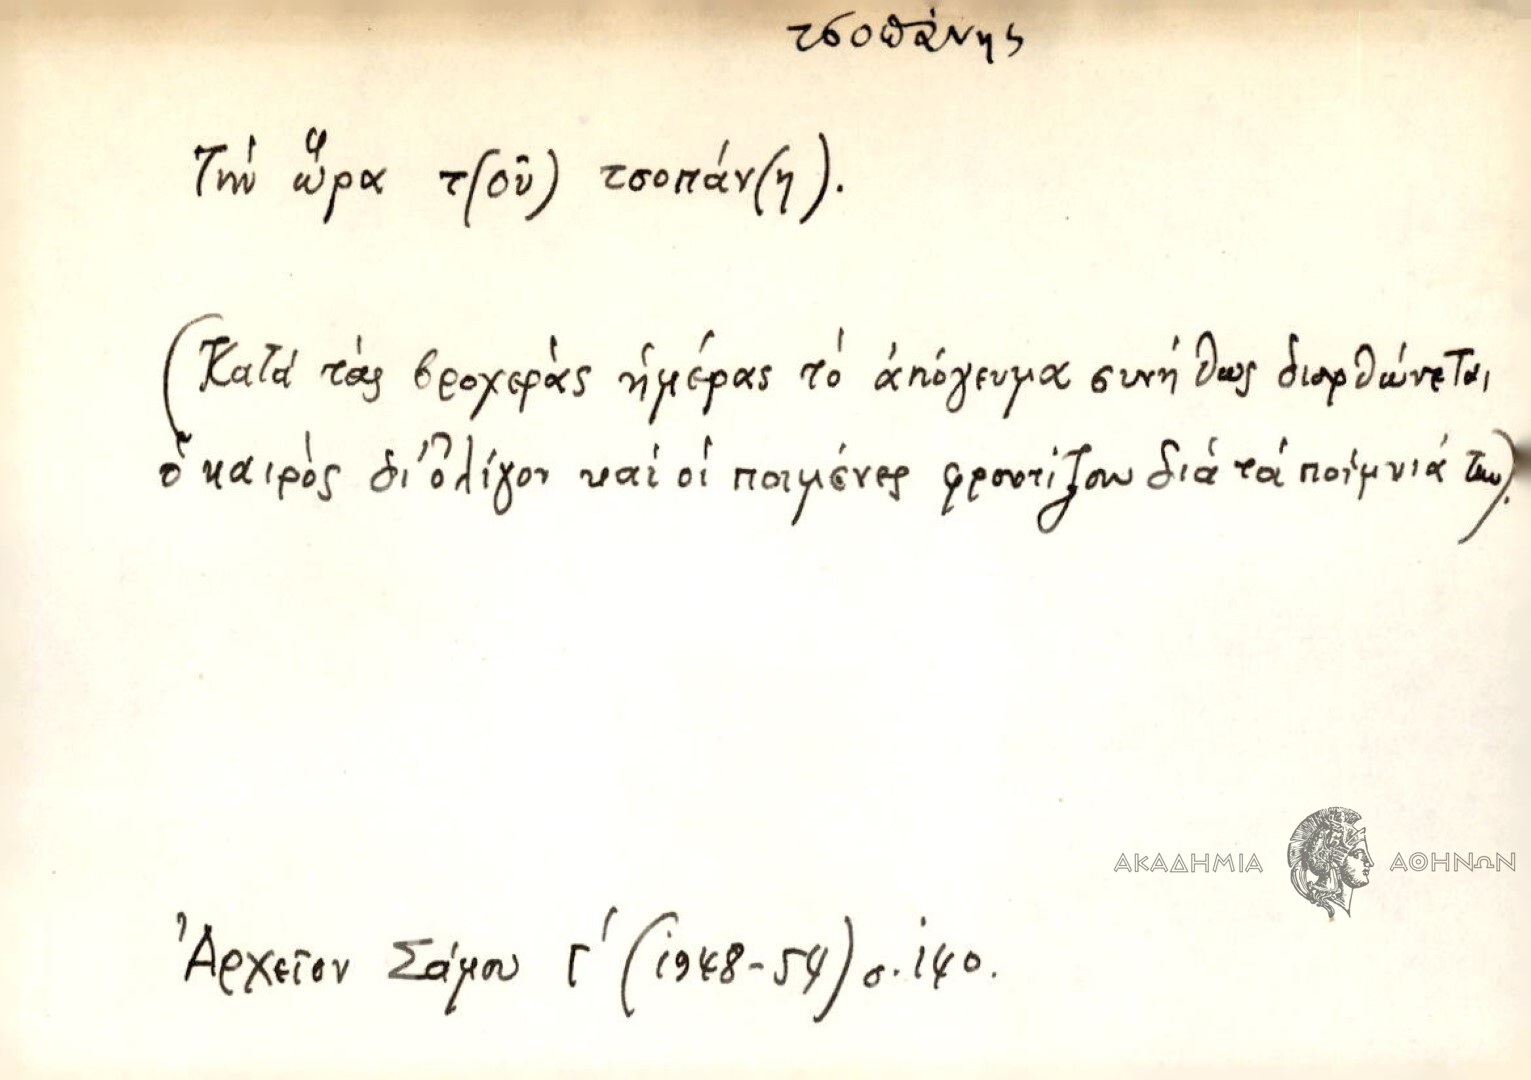 τσοπάνης
Τήν ὥρα τ(οῦ) τσοπάν(η).
(Κατά τὰς βροχερὰς ἡμέρας τό ἀπόγευμα συνήθως διορθώνεται
ὁ καιρὸς δι' ὀλίγον καί οἱ ποιμένες φροντίζουν διά τά ποίμνιά των).
ΑΚΑΔΗΜΙΑ ΑΘΗΝΩΝ
Ἀρχεῖον Σάμου Γ' (1948-54) σ. 140.